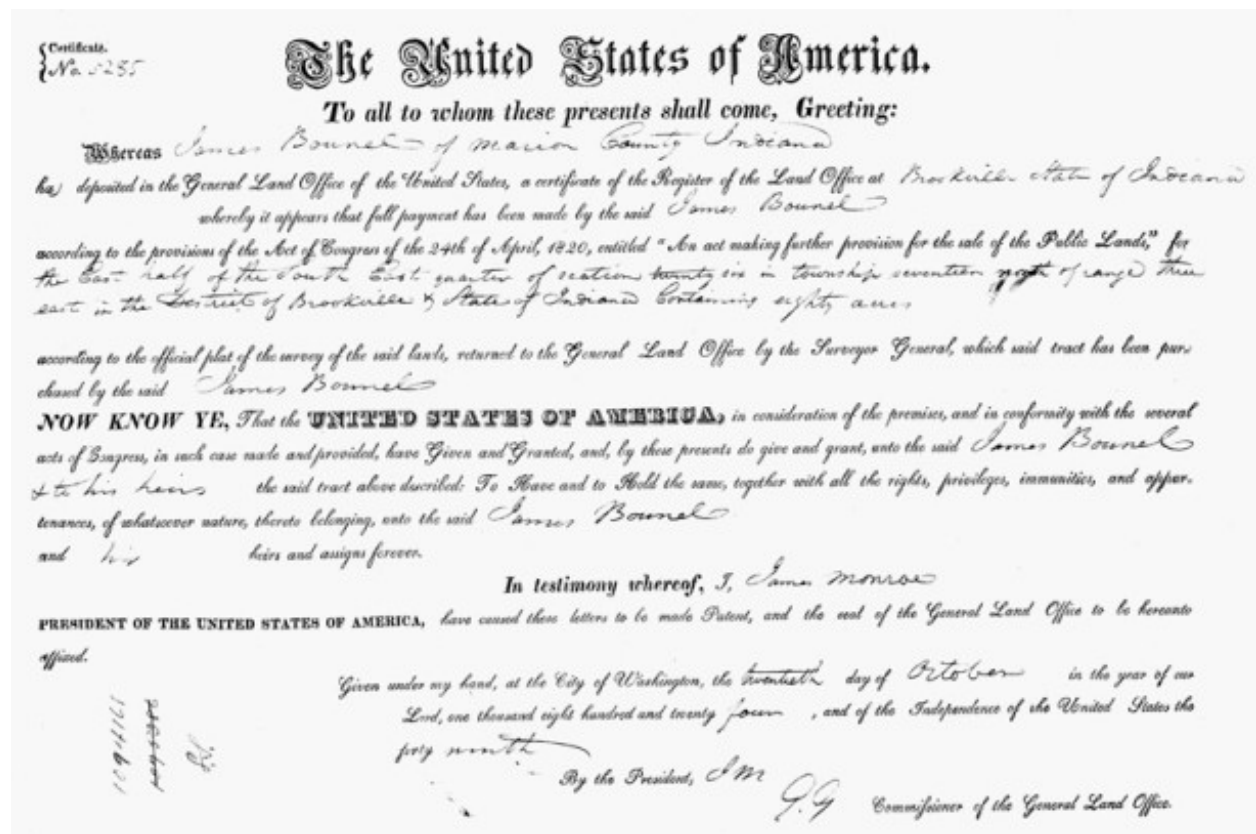 Certificate.
No. 5235
The United States of America.
To all to whom these presents shall come, Greeting:
Whereas James Bounel of Marion County Indiana
ha deposited in the General Land Office of the United States, a certificate of the Register of the Land Office at Brookville State of Indiana
whereby it appears that full payment has been made by the said James Bounel
according to the provisions of the Act of Congress of the 24th of April, 1820, entitled "An act making further provision for the sale of the Public Lands," for
the East half of the South East quarter of section twenty six in township seventeen north of range three
east in the District of Brookville & State of Indiana Containing eighty acres
according to the official plat of the survey of the said lands, returned to the General Land Office by the Surveyor General, which said tract has been pur-
chased by the said James Bounel
NOW KNOW YE, That the UNITED STATES OF AMERICA, in consideration of the premises, and in conformity with the several
acts of Congress, in such case made and provided, have Given and Granted, and, by these presents do give and grant, unto the said James Bounel
& to his heirs the said tract above described: To Have and to Hold the same, together with all the rights, privileges, immunities, and appur-
tenances, of whatsoever nature, thereto belonging, unto the said James Bounel
and his heirs and assigns forever.
In testimony whereof, I, James Monroe
PRESIDENT OF THE UNITED STATES OF AMERICA, have caused these letters to be made Patent, and the seal of the General Land Office to be hereunto
affixed.
Given under my hand, at the City of Washington, the twentieth day of October in the year of our
Lord, one thousand eight hundred and twenty four, and of the Independence of the United States the
forty ninth
By the President, J M
G. G Commissioner of the General Land Office.